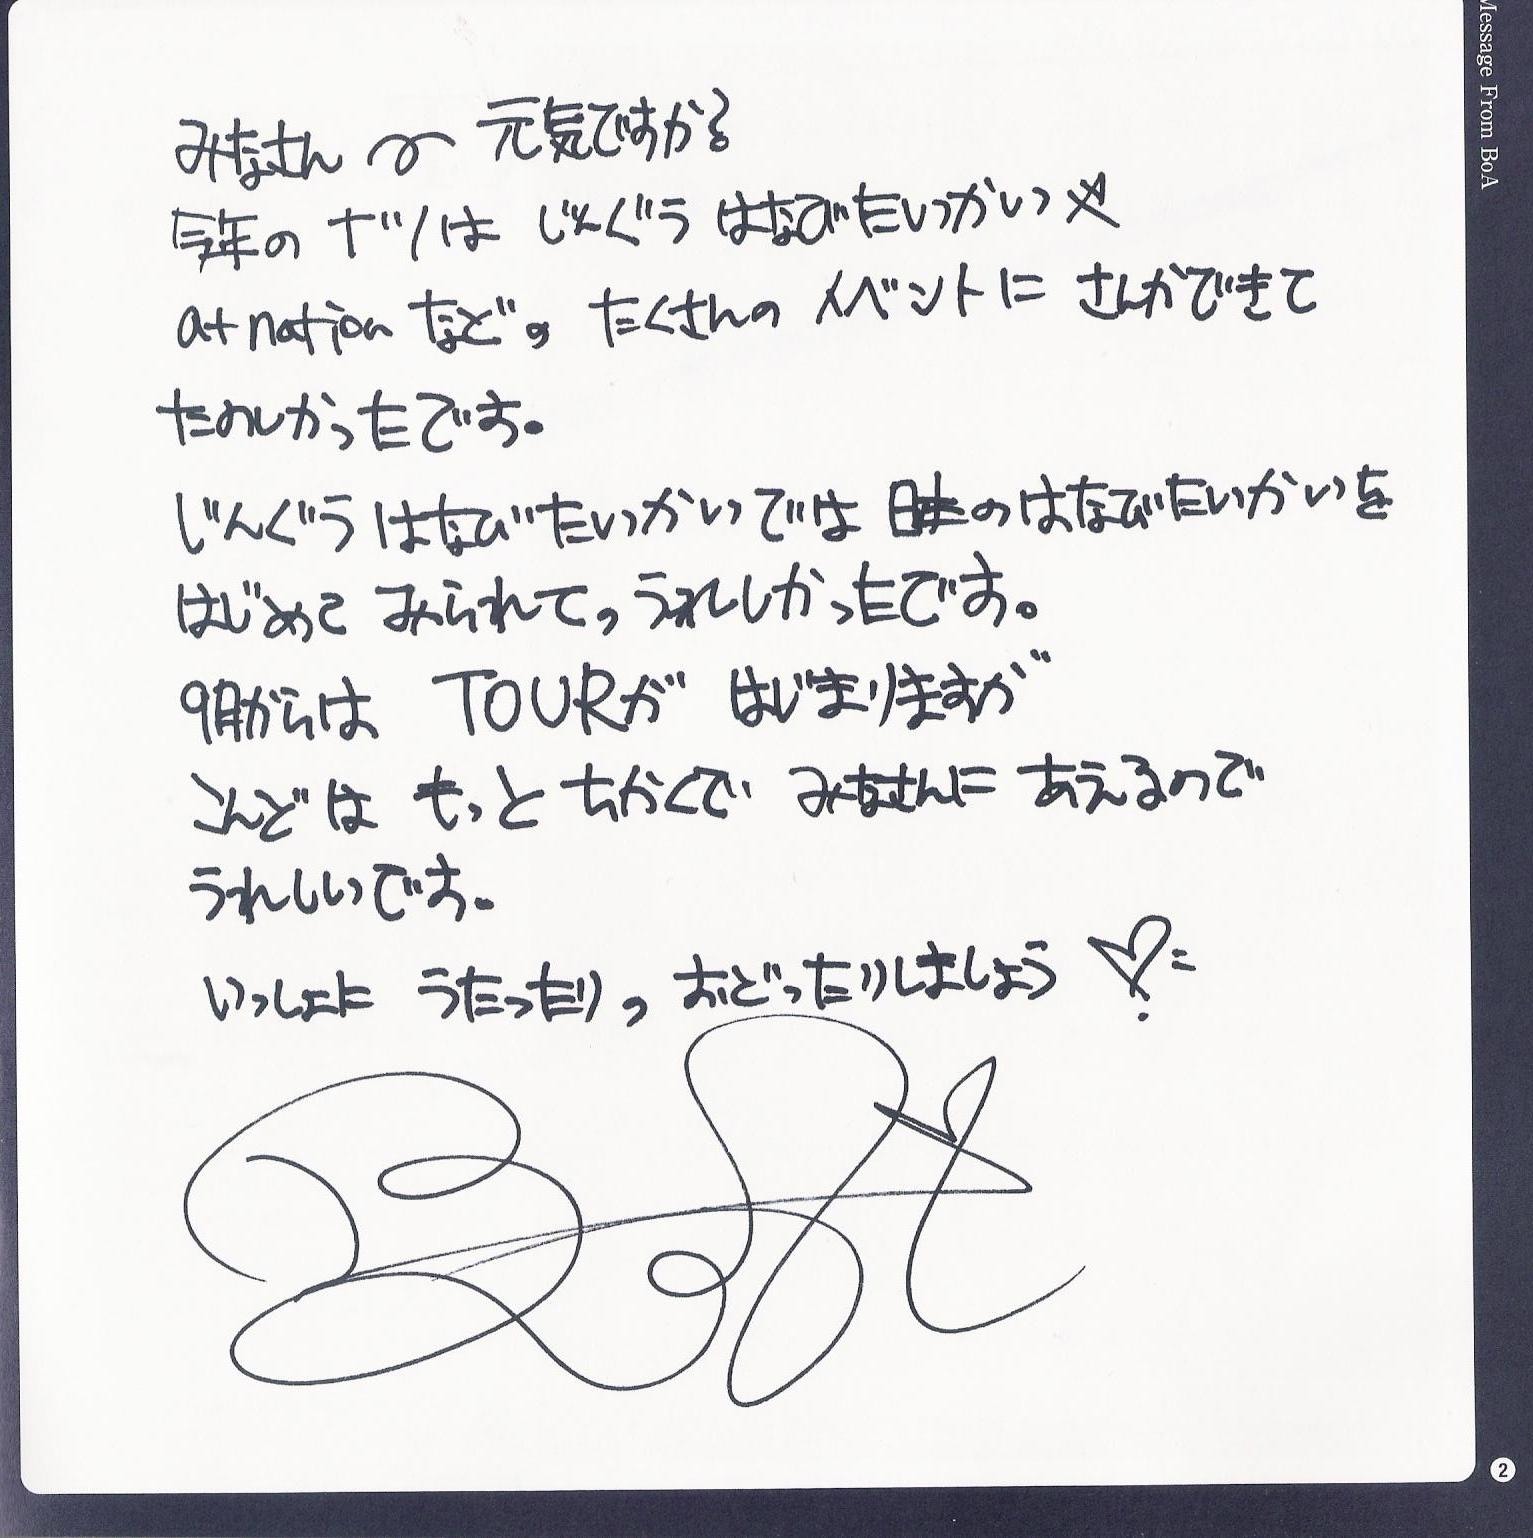 みなさん〜 元気ですか?
今年のナツは じんぐう はなびたいかいや
a+nation など、たくさんの イベントに さんかできて
たのしかったです。
じんぐう はなびたいかいでは 日本のはなびたいかいを
はじめて みられて、うれしかったです。
9月からは TOURが はじまりますが
こんどは もっと ちかくで みなさんに あえるので
うれしいです。
いっしょに うたったり、おどったりしましょう ♡
BoA
Message From BoA
2